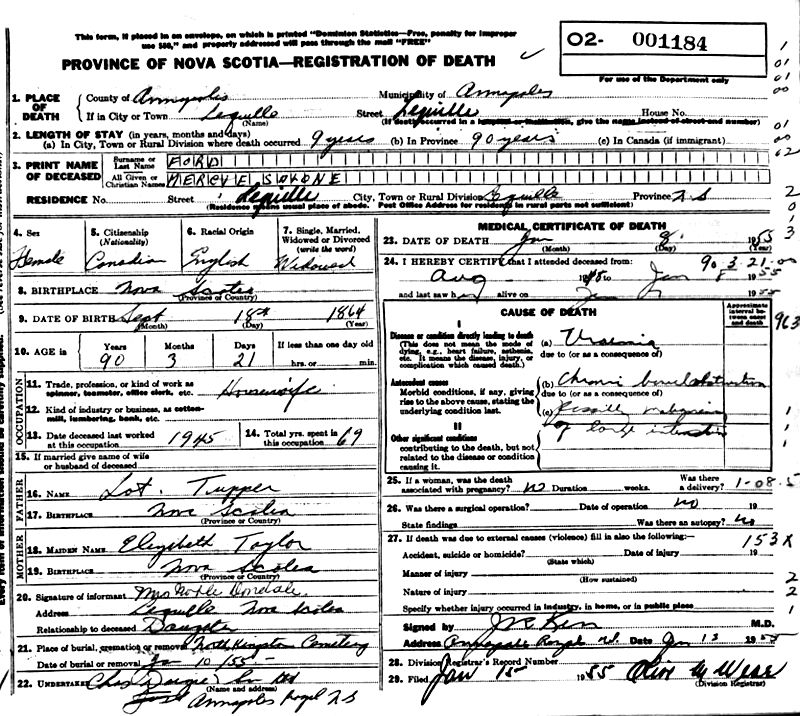 This form, if placed in an envelope, on which is printed "Dominion Statistics—Free, penalty for improper
use $50," and properly addressed will pass through the mail "FREE"
PROVINCE OF NOVA SCOTIA—REGISTRATION OF DEATH
02- 001184
For use of the Department only
1. PLACE OF DEATH { County of Annapolis Municipality of Annapolis
If in City or Town Lequille Street Lequille House No.
(Name) (If death occurred in a hospital or institution, give the name instead of street and number)
2. LENGTH OF STAY (in years, months and days)
(a) In City, Town or Rural Division where death occurred 9 years (b) In Province 90 years (c) In Canada (if immigrant)
3. PRINT NAME OF DECEASED { Surname or Last Name FORD
All Given or Christian Names MERCYE SALONE
RESIDENCE No. Street Lequille City, Town or Rural Division Lequille Province N.S
(Residence means usual place of abode. Post Office Address for residents in rural parts not sufficient)
4. Sex Female
5. Citizenship (Nationality) Canadian
6. Racial Origin English
7. Single, Married, Widowed or Divorced (write the word) Widowed
8. BIRTHPLACE Nova Scotia
(Province or Country)
9. DATE OF BIRTH Sept 18th 1864
(Month) (Day) (Year)
10. AGE in Years 90 Months 3 Days 21 If less than one day old hrs. or min.
OCCUPATION
11. Trade, profession, or kind of work as spinner, teamster, office clerk, etc. Housewife
12. Kind of industry or business, as cotton-mill, lumbering, bank, etc.
13. Date deceased last worked at this occupation 1945
14. Total yrs. spent in this occupation 69
15. If married give name of wife or husband of deceased
FATHER
16. NAME Lot. Tupper
17. BIRTHPLACE Nova Scotia
(Province or Country)
MOTHER
18. MAIDEN NAME Elizabeth Taylor
19. BIRTHPLACE Nova Scotia
(Province or Country)
20. Signature of informant Mrs
Address Lequille Nova Scotia
Relationship to deceased Daughter
21. Place of burial, cremation or removal North Kingston Cemetery
Date of burial or removal Jan 10/55
22. UNDERTAKER Chas
(Name and address)
Annapolis Royal N S
MEDICAL CERTIFICATE OF DEATH
23. DATE OF DEATH Jan 8 1955
(Month) (Day) (Year)
90 3 21
24. I HEREBY CERTIFY that I attended deceased from:
Aug 1948 to Jan 8 1955
and last saw her alive on Jan 1955
CAUSE OF DEATH
Approximate interval between onset and death
I
Disease or condition directly leading to death
(This does not mean the mode of dying, e.g., heart failure, asthenia, etc. It means the disease, injury, or complication which caused death.)
(a) Uraemia
due to (or as a consequence of)
Antecedent causes
Morbid conditions, if any, giving rise to the above cause, stating the underlying condition last.
(b) Chronic bowel obstruction
due to (or as a consequence of)
(c) Possible malignancy
of large intestine
II
Other significant conditions
contributing to the death, but not related to the disease or condition causing it.
963
25. If a woman, was the death associated with pregnancy? No Duration weeks. Was there a delivery?
1-08-5
26. Was there a surgical operation? Date of operation no 19
State findings Was there an autopsy? No
27. If death was due to external causes (violence) fill in also the following:—
153X
Accident, suicide or homicide? Date of injury 19
(State which)
Manner of injury
(How sustained)
Nature of injury
Specify whether injury occurred in industry, in home, or in public place
Signed by M.D.
Address Annapolis Royal N.S. Date Jan 1955
28. Division Registrar's Record Number
29. Filed Jan 15 1955
(Division Registrar)